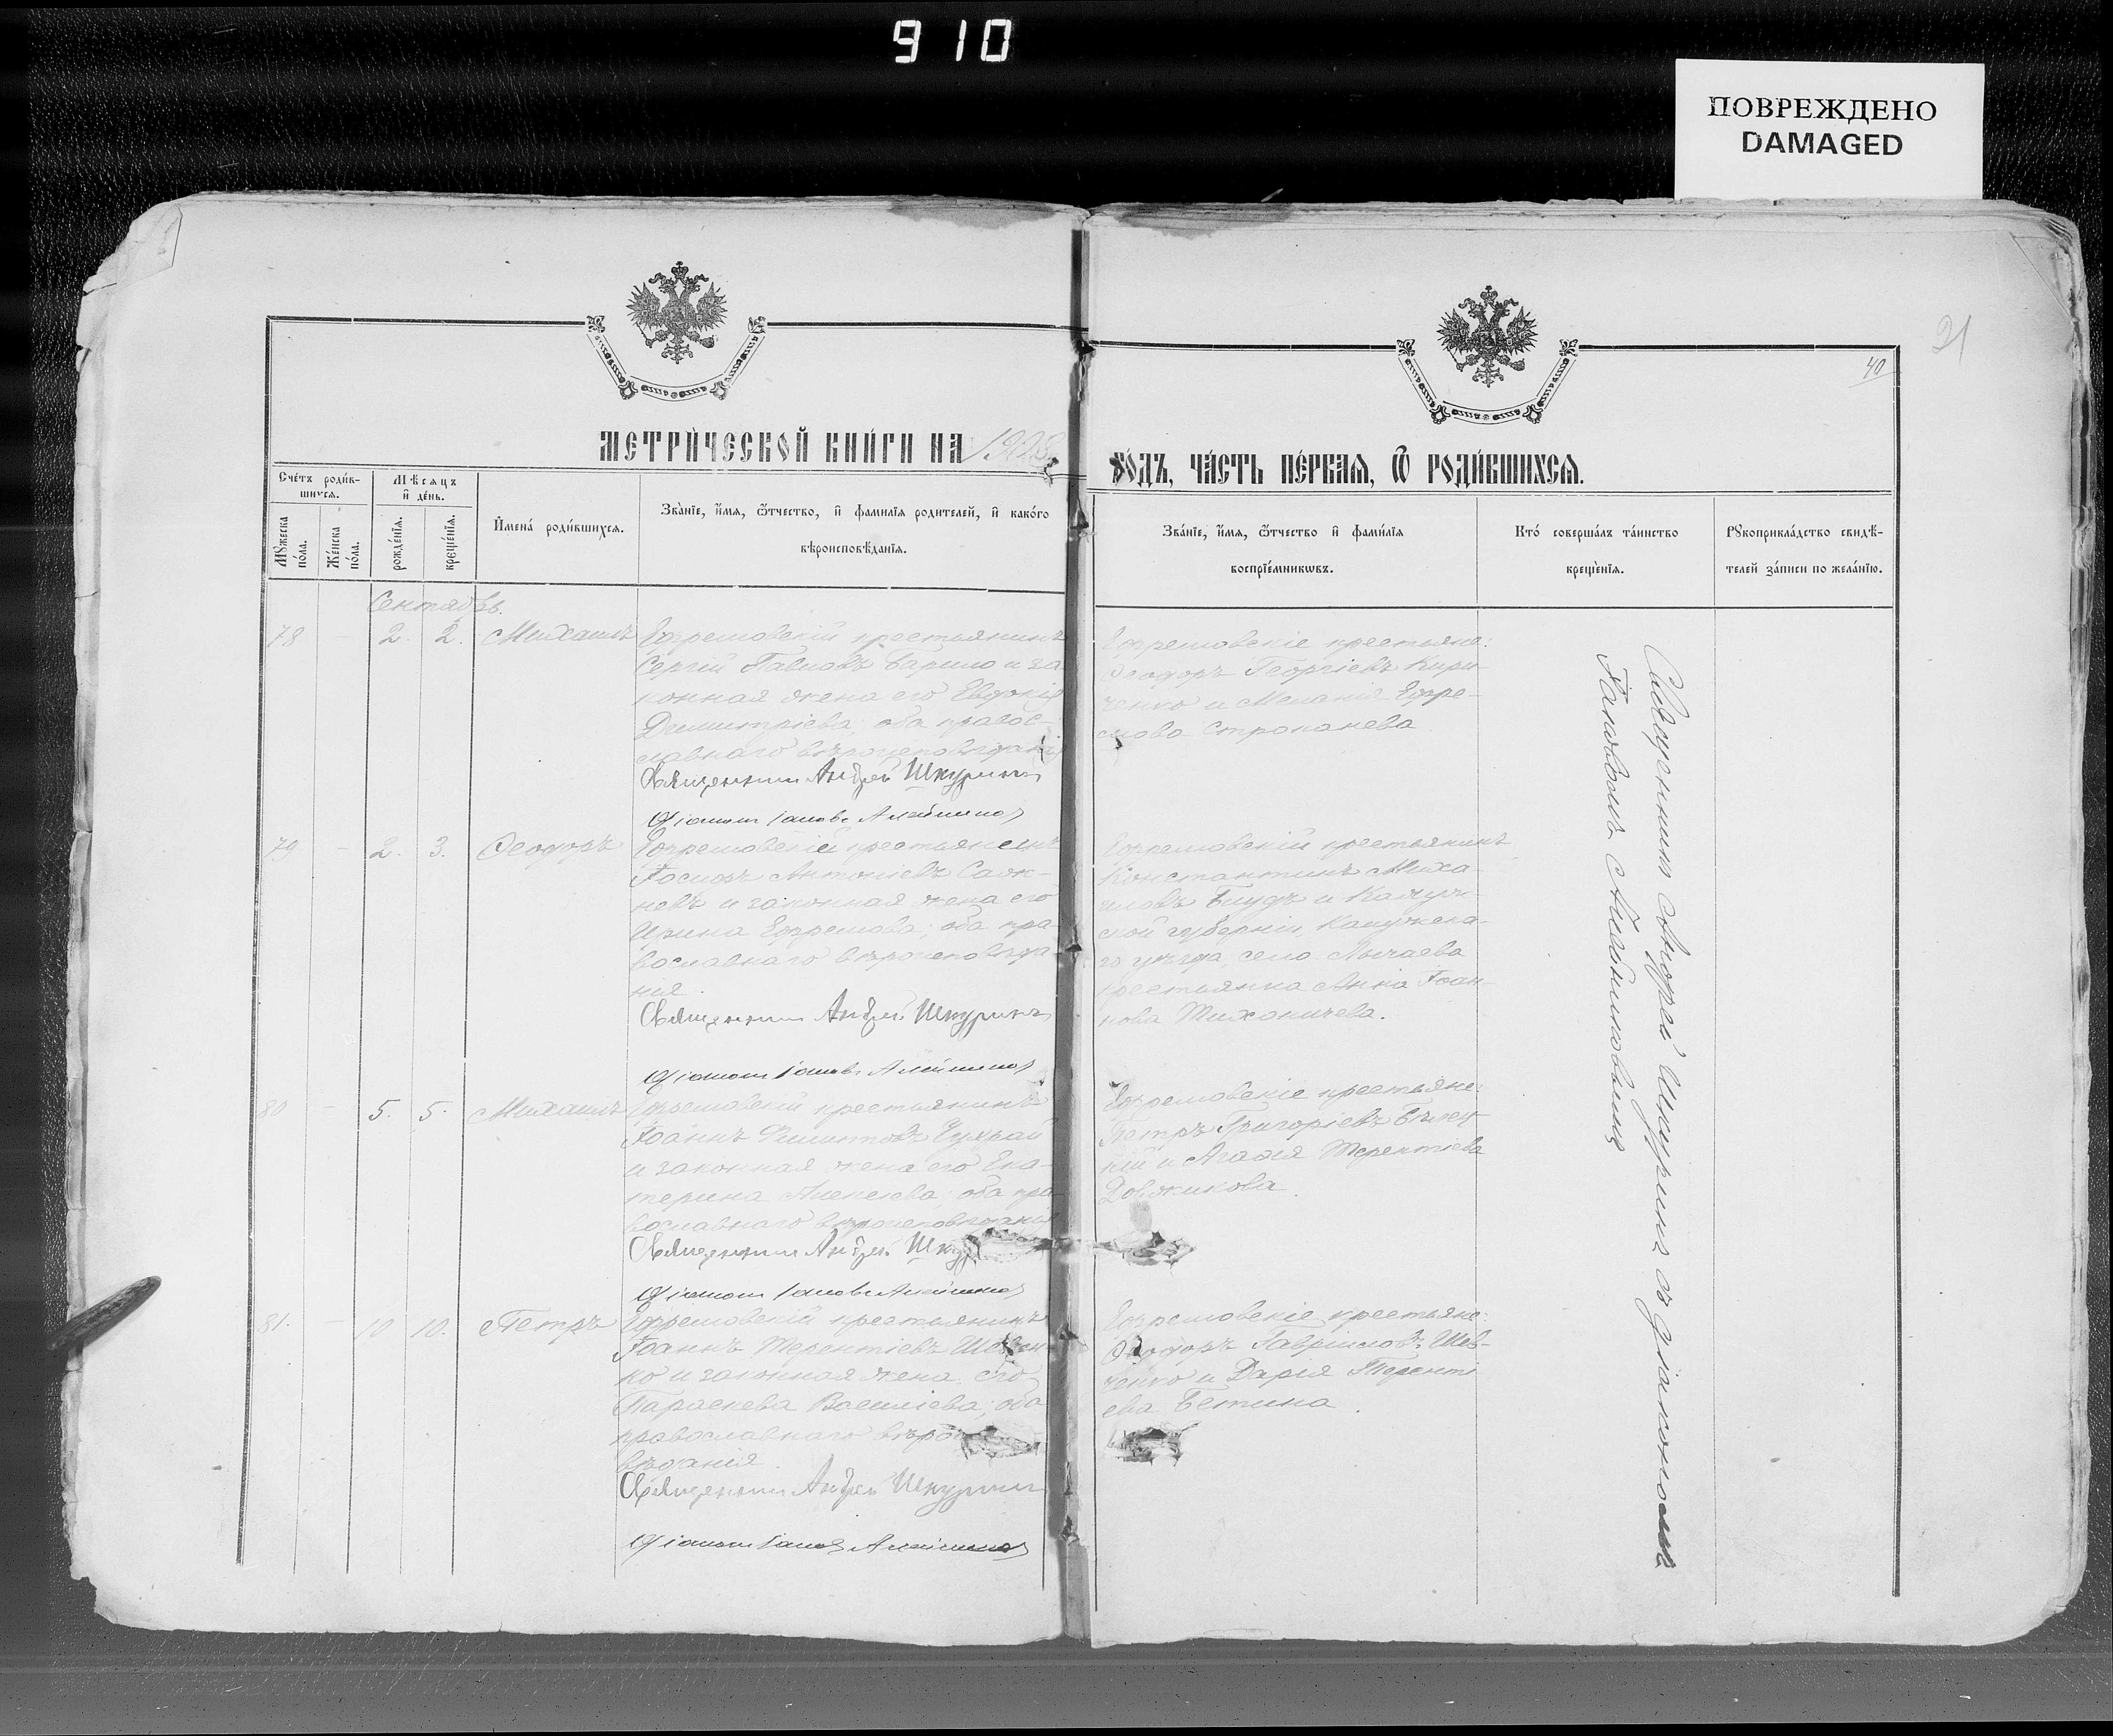 910
ПОВРЕЖДЕНО
DAMAGED
21
40
МЕТРИ́ЧЕСКОЙ КНИ́ГИ НА
ГО́ДЪ, ЧА́СТЬ ПЕ́РВАѦ, Ѿ РОДИ́ВШИХСѦ.
Сче́тъ роди́в-
шихсѧ.
Мѣсѧцъ
и҆ де́нь.
Мꙋжеска
по́ла.
Же́нска
по́ла.
рожде́нїѧ.
креще́нїѧ.
И҆мена́ роди́вшихсѧ.
Зва́нїе, и҆́мѧ, ѻ҆́тчество, и҆ фами́лїѧ родителей, и҆ како́го
вѣроисповѣ́данїѧ.
Зва́нїе, и҆́мѧ, ѻ҆́тчество и҆ фами́лїѧ
воспрїе́мникѡвъ.
Кто́ соверша́лъ та́инство
креще́нїѧ.
Рꙋкоприкла́дство свидѣ́-
телей за́писи по жела́нїю.
Сентябрь.
78 - 2. 2. Михаилъ
Ефремовскій крестьянинъ
Сергій Павловъ Барило и за
конная жена его Евдокія
Димитріева, оба правос-
лавнаго вѣроисповѣданія
Священникъ Андрей Шкуринъ
Діаконъ Іаковъ Алейников
Ефремовскіе крестьяне:
Ѳеодоръ Георгіевъ Кири-
ченко и Меланія Ефре-
мова Строканева
79 - 2. 3. Ѳеодоръ
Ефремовскій крестьянинъ
Іосифъ Антоніевъ
невъ и законная жена его
Ирина Ефремова, оба пра-
вославнаго вѣроисповѣда-
нія.
Священникъ Андрей Шкуринъ
Діаконъ Іаковъ Алейников
Ефремовскій крестьянинъ
Константинъ Миха-
иловъ и Калуж-
ской губерніи, Калужска-
го уѣзда, село
крестьянка Анна Іоан-
нова Тихоничева.
80 - 5. 5. Михаилъ
Ефремовскій крестьянинъ
Іоаннъ Чухрай
и законная жена его Ека-
терина Алексіева, оба пра-
вославнаго вѣроисповѣданія
Священникъ Андрей Шкур
Діаконъ Іаковъ Алейников
Ефремовскіе крестьяне:
Петръ Григоріевъ Бѣлец-
кій и Агафія Терентіева
Довжикова.
81. - 10 10. Петръ
Ефремовскій крестьянинъ
Іоаннъ Терентіевъ Шевчен-
ко и законная жена его
Параскева Василіева, оба
православнаго вѣро
вѣданія.
Священникъ Андрей Шкуринъ
Діаконъ Іаковъ Алейников
Ефремовскіе крестьяне:
Ѳеодоръ Гавріиловъ Шев-
ченко и Дарія Теренті
ева Бетина.
Священникъ Андрей Шкуринъ съ діакономъ
Іаковомъ Алейниковымъ